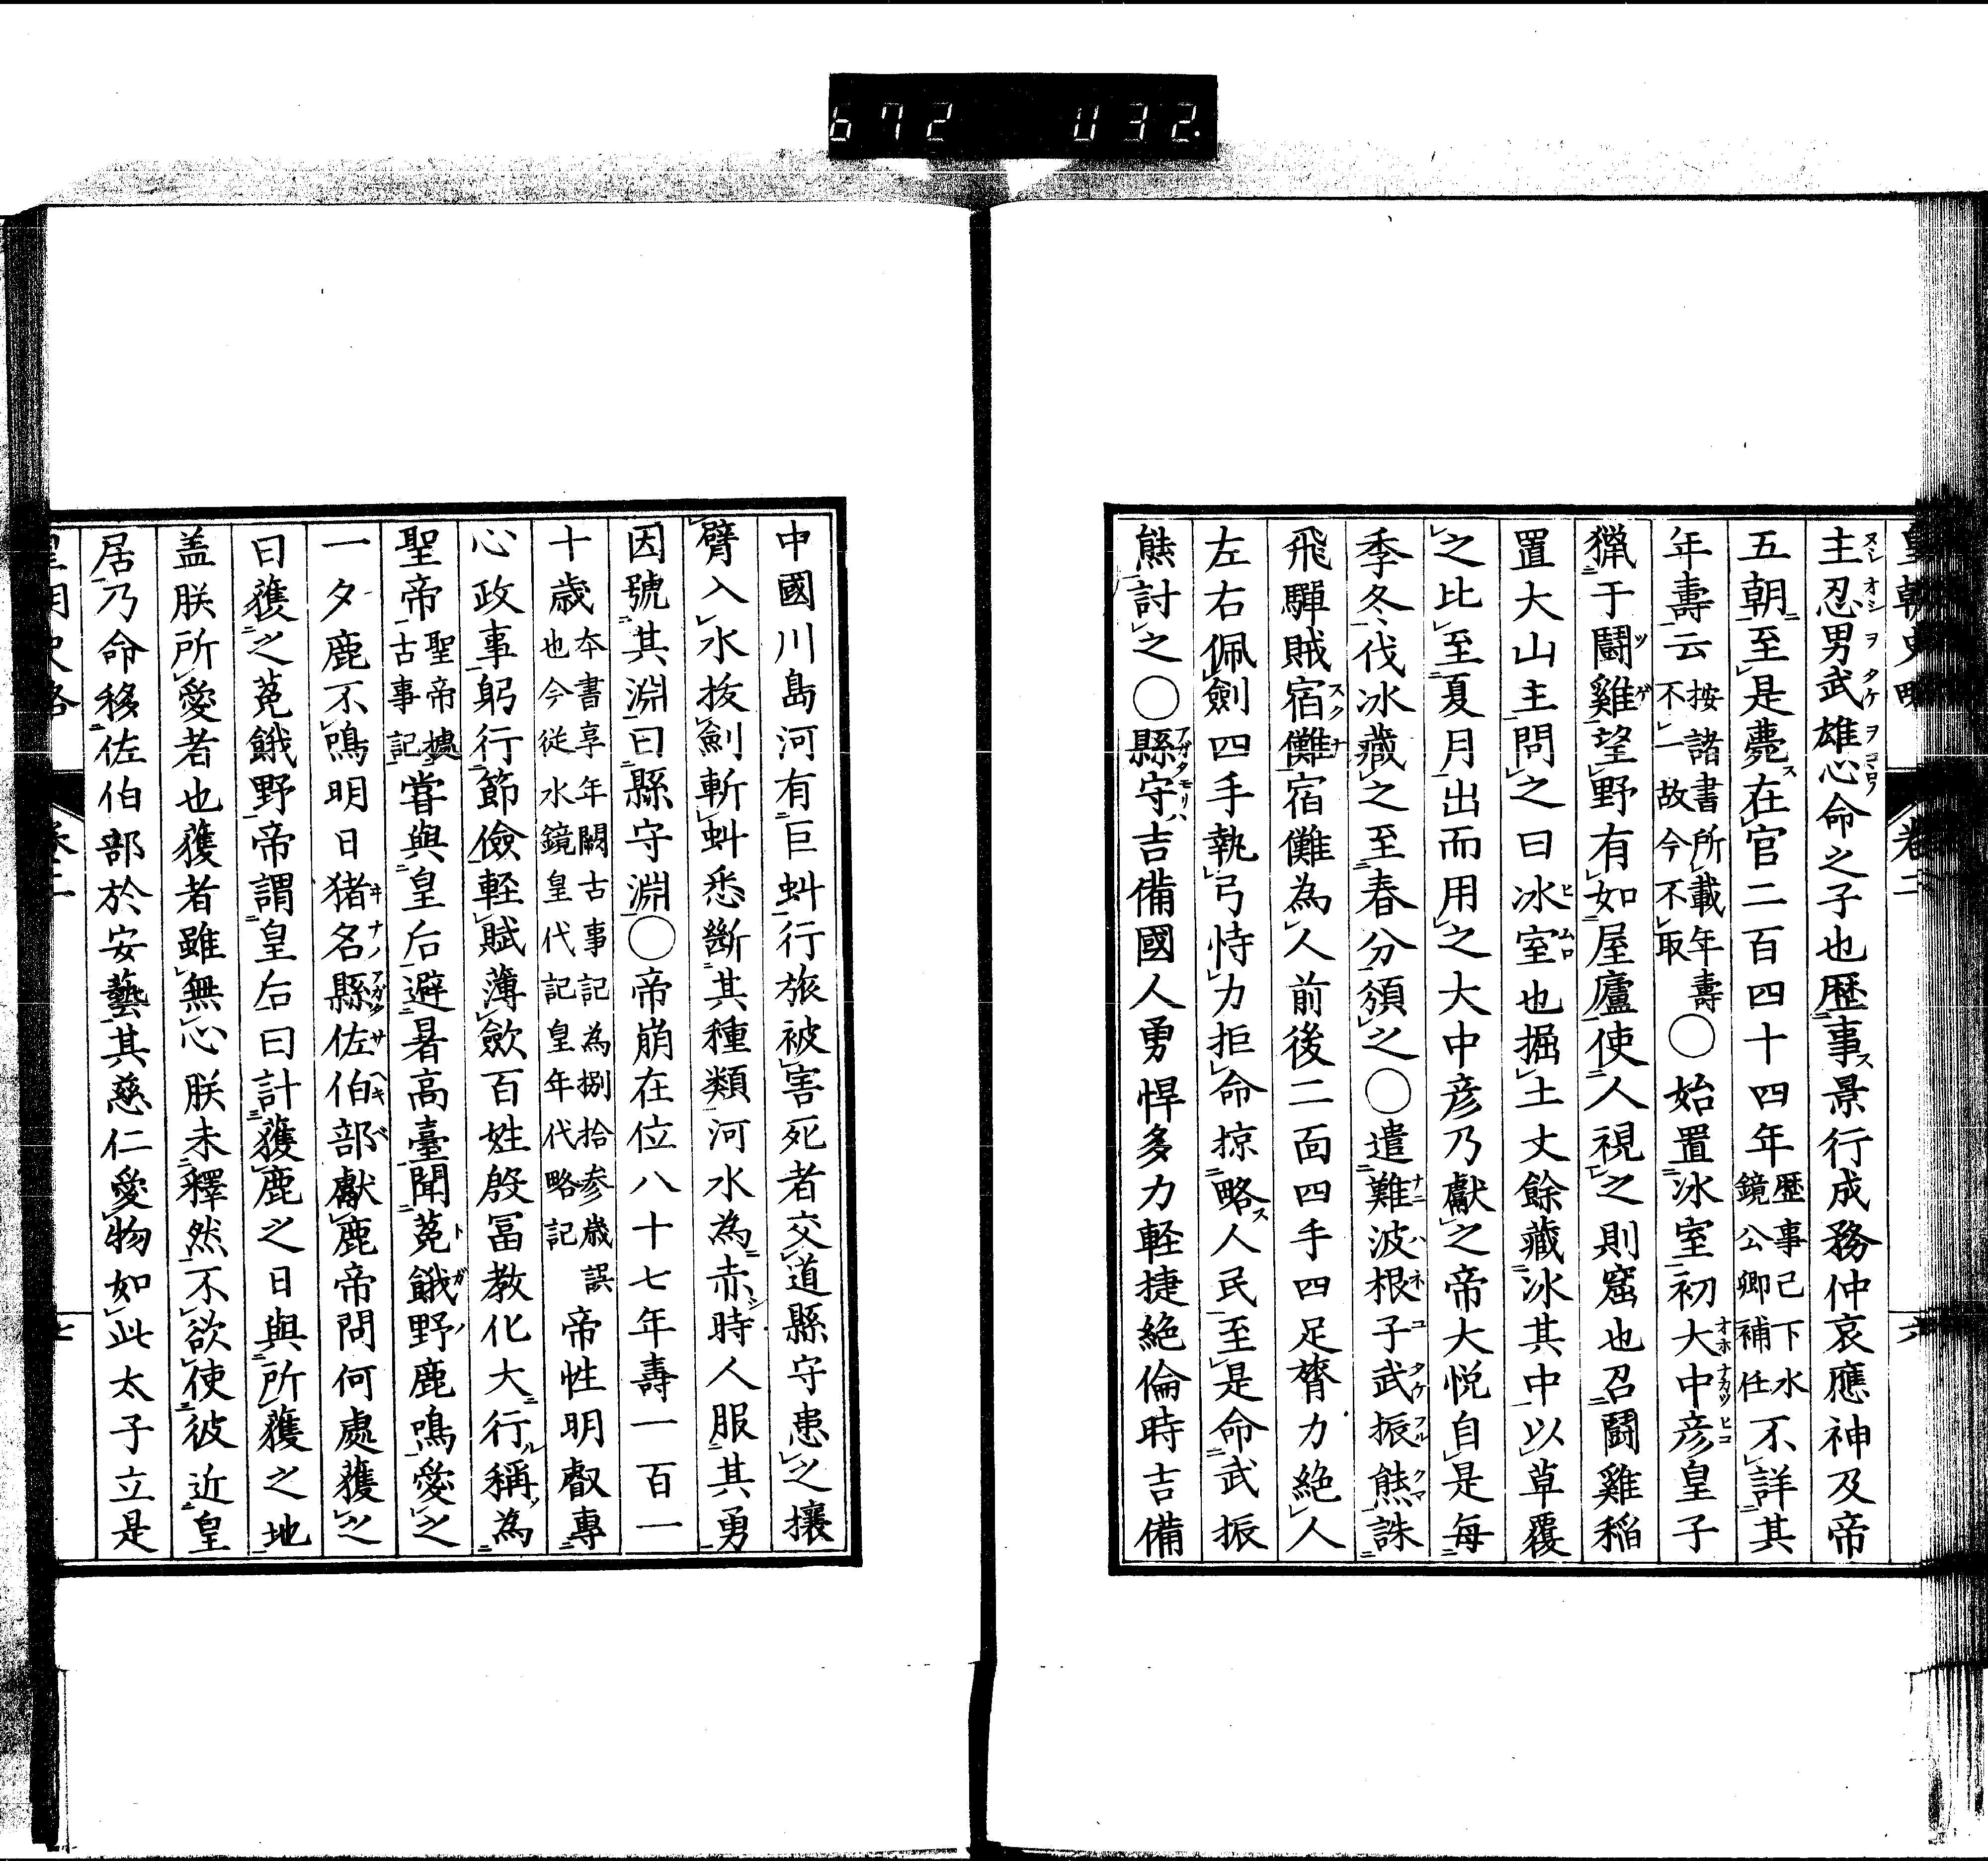 672 032
皇朝史略 卷二 六
主忍男武雄心命之子也歷事景行成務仲哀應神及帝
五朝至是薨在官二百四十四年歷事已下水鏡公卿補任不詳其
年壽云按諸書所載年壽不一故今不取○始置氷室初大中彦皇子
獵于鬪雞望野有如屋廬使人視之則窟也召鬪雞稲
置大山主問之曰氷室也掘土丈餘藏氷其中以草覆
之比至夏月出而用之大中彦乃獻之帝大悦自是每
季冬伐氷藏之至春分頒之○遣難波根子武振熊誅
飛騨賊宿儺宿儺為人前後二面四手四足膂力絶人
左右佩劍四手執弓恃力拒命掠略人民至是命武振
熊討之○縣守吉備國人勇悍多力軽捷絶倫時吉備
中國川島河有巨虯行旅被害死者交道縣守患之攘
臂入水拔劍斬虯悉斷其種類河水為赤時人服其勇
因號其淵曰縣守淵○帝崩在位八十七年壽一百一
十歳本書享年闕古事記為捌拾参歳誤也今従水鏡皇代記皇年代略記帝性明叡專
心政事躬行節儉軽賦薄歛百姓殷冨教化大行稱為
聖帝聖帝據古事記甞與皇后避暑高臺聞菟餓野鹿鳴愛之
一夕鹿不鳴明日猪名縣佐伯部獻鹿帝問何處獲之
曰獲之菟餓野帝謂皇后曰計獲鹿之日與所獲之地
盖朕所愛者也獲者雖無心朕未釋然不欲使彼近皇
居乃命移佐伯部於安藝其慈仁愛物如此太子立是
皇朝史略 卷二 七